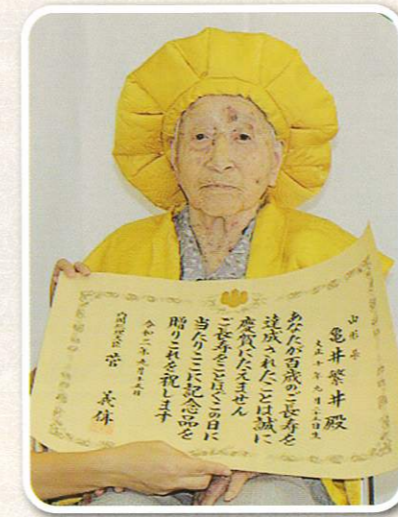 山形県
亀井繁井殿
大正十年九月日生
あなたが百歳のご長寿を
達成されたことは誠に
慶賀にたえません
ご長寿をことほぐこの日に
当たりここに記念品を
贈りこれを祝します
令和二年日
内閣総理大臣 菅 義偉